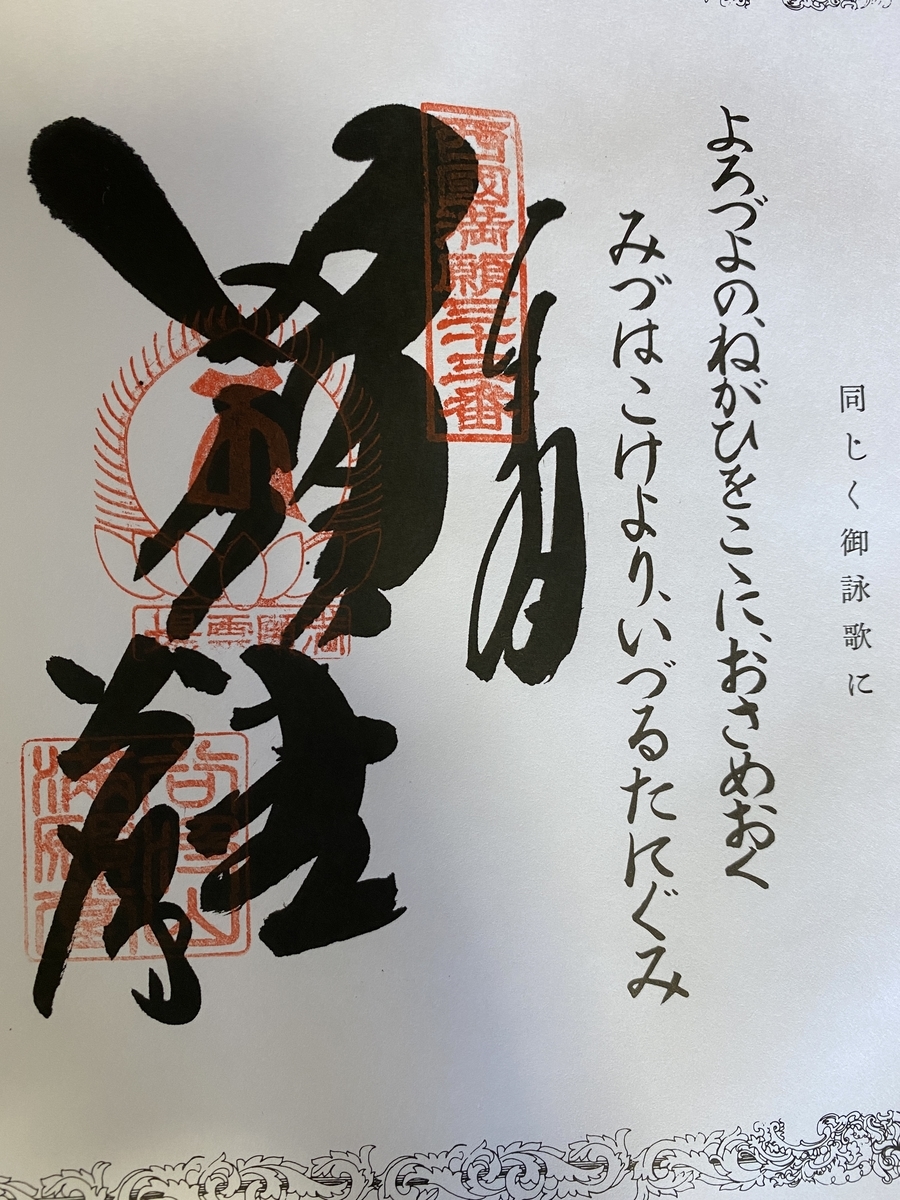 同じく御詠歌に
よろづよの、ねがひをこゝに、おさめおく
みづはこけより、いづるたにぐみ
年月
西國満願三十三番
満願霊場
谷汲山
満願堂